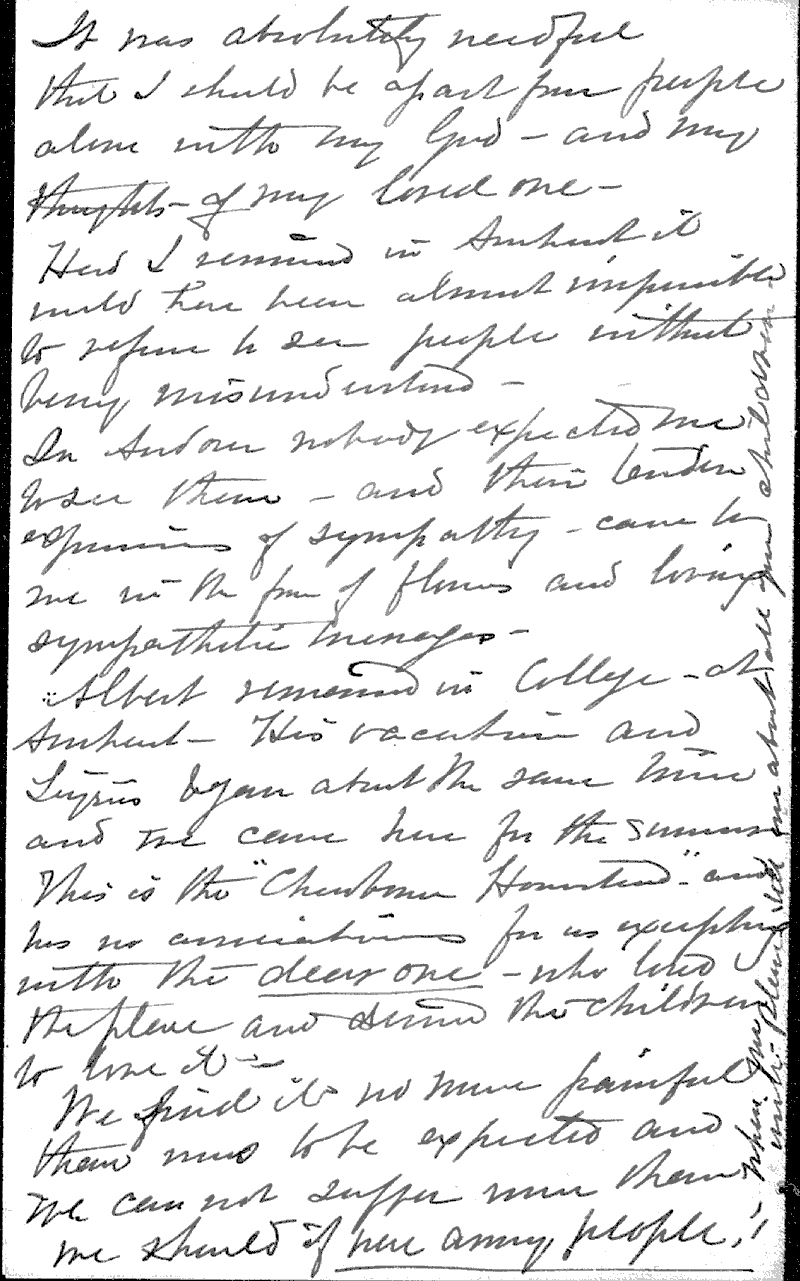 It was absolutely needful
that I should be apart from people
alone with my God – and my
thoughts – of my loved one –
Had I remained in Amherst it
would have been almost impossible
to refuse to see people without
being misunderstood –
In Andover nobody expected me
to see them – and their tender
expressions of sympathy – came to
me in the form of flowers and loving
sympathetic messages –
Albert remained in College – at
Amherst – His vacation and
began about the same time
and we came here for the summer
This is the " Homestead" – and
has no associations for us excepting
with the dear one – who loved
the place and desired the children
to love it –
We find it no more painful
than was to be expected and
we can not suffer more than
we should if were among people;
when you write – please tell me about all your children –